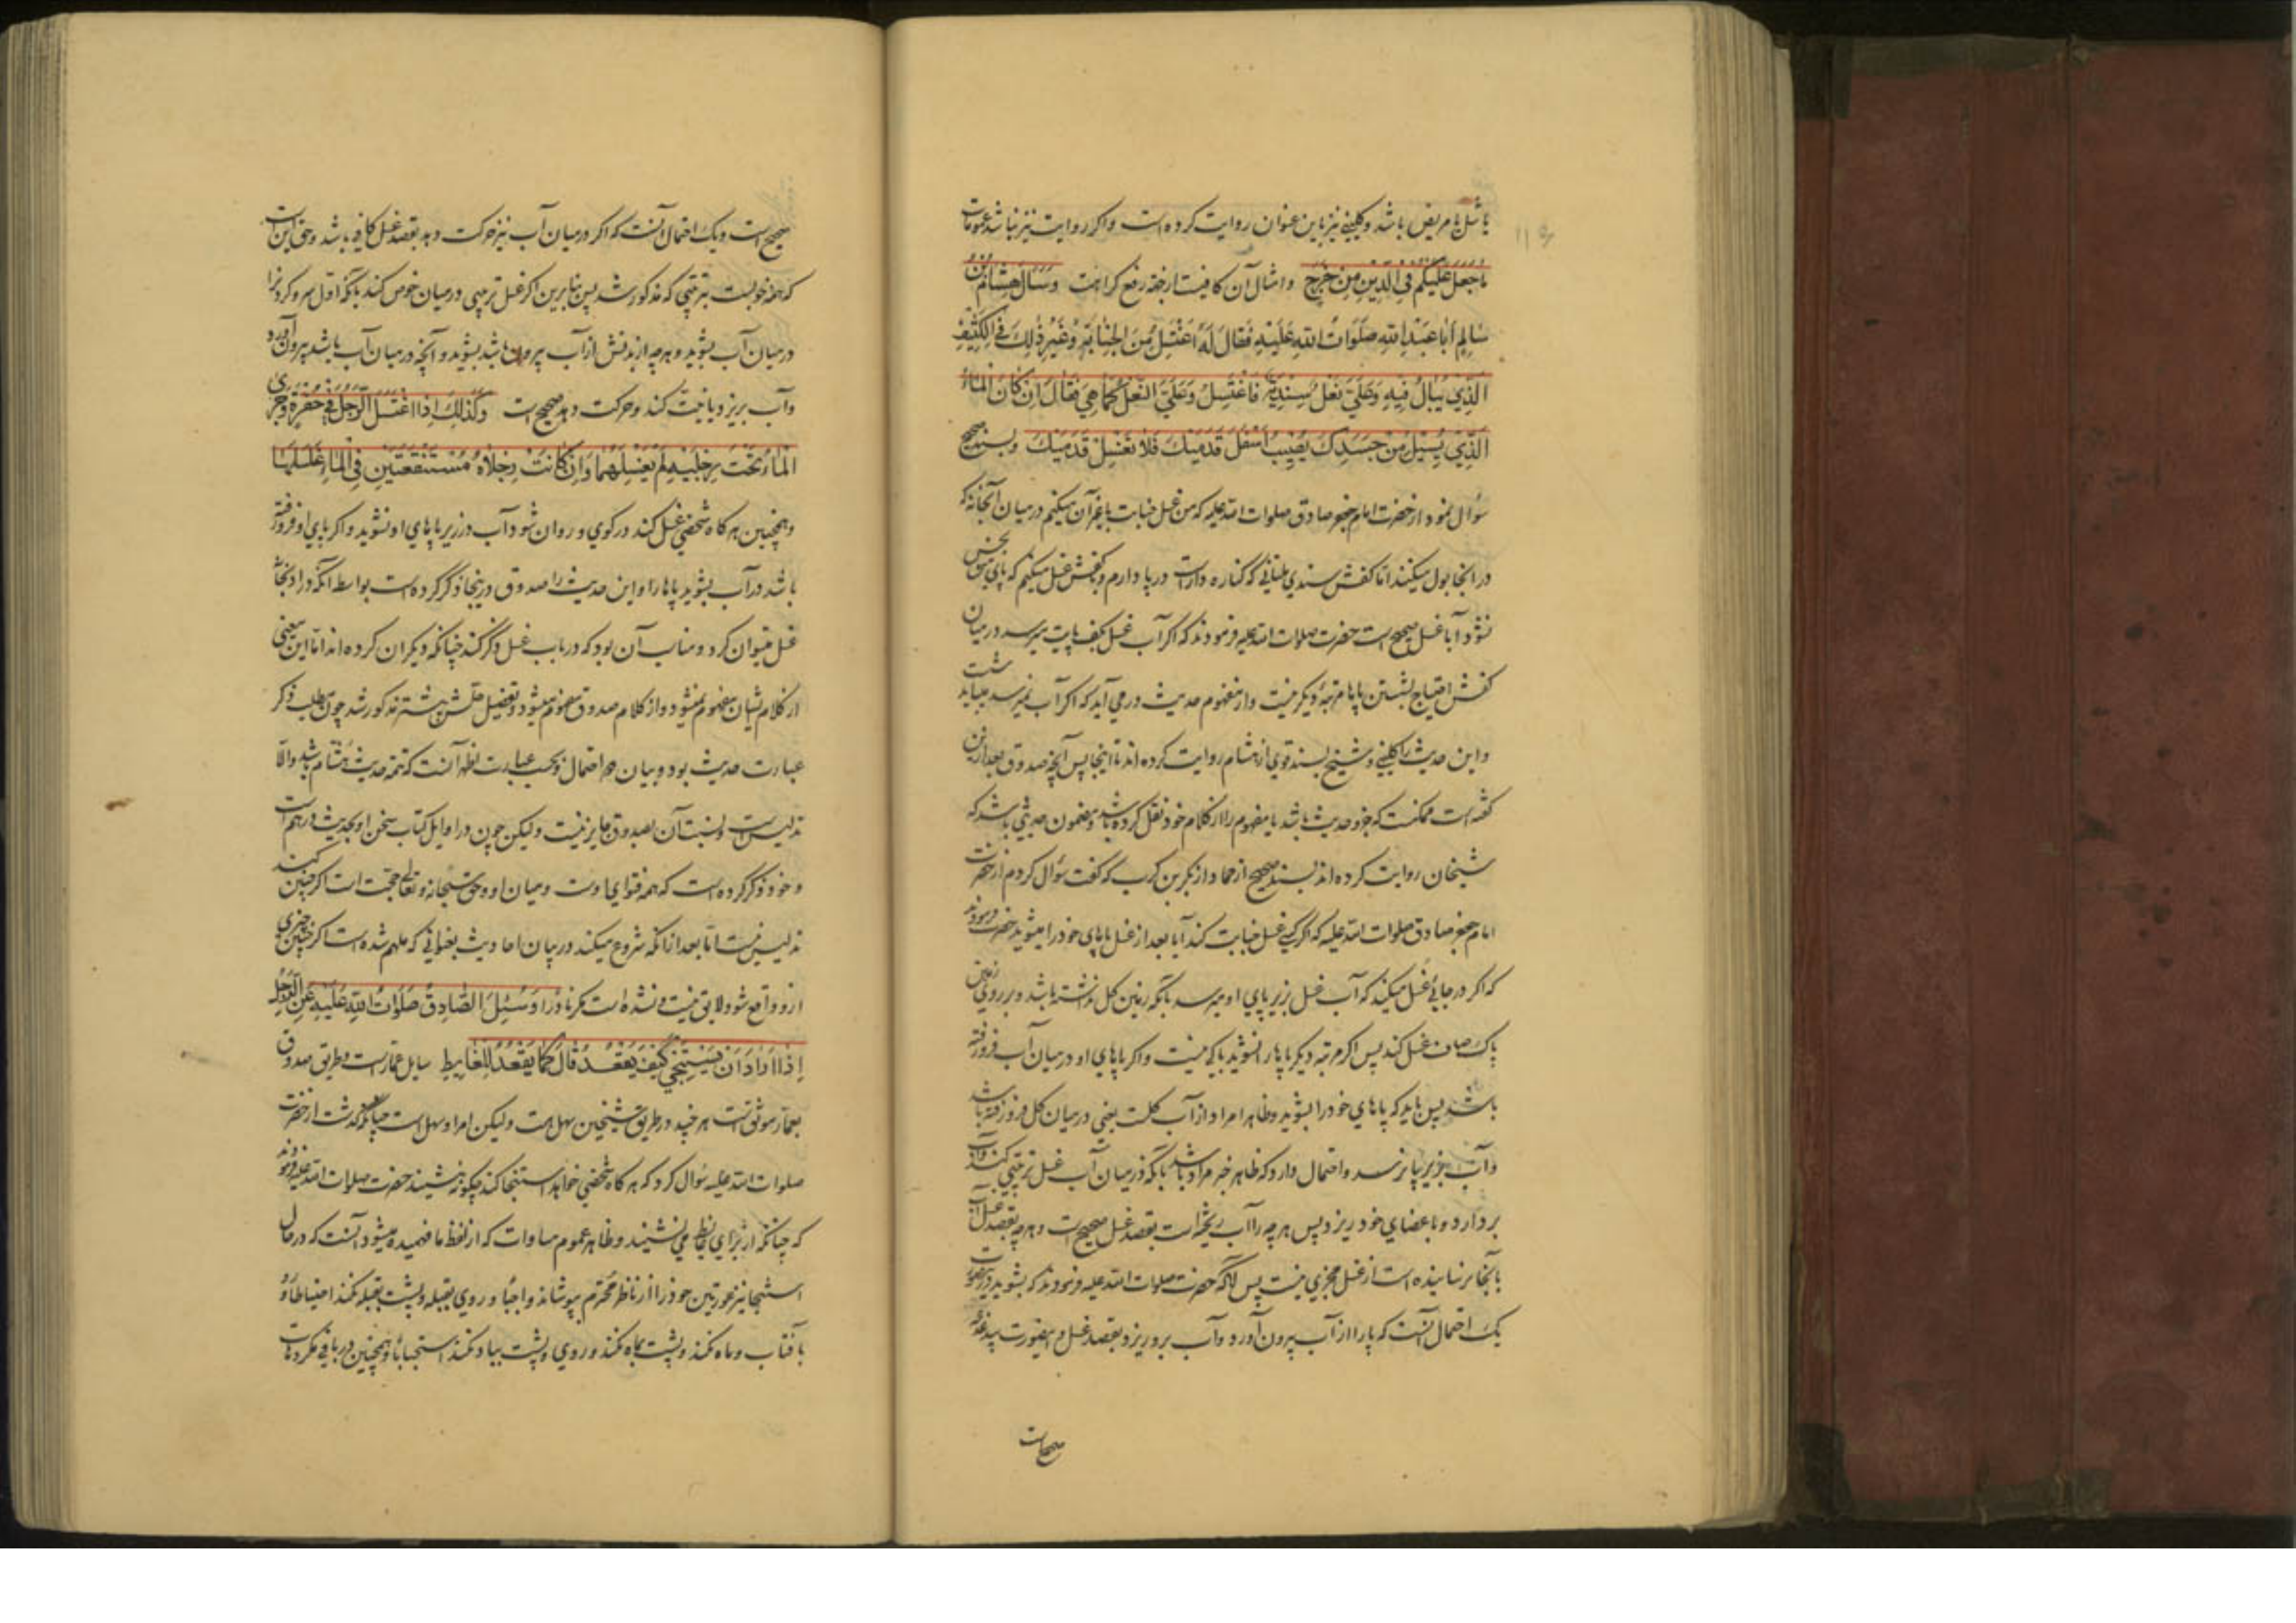 یا شل یا مریض باشد و کلینی نیز باین عنوان روایت کرده است و اکر روایت نیز نباشد عمومات
ما جعل علیکم فی الدین من حرج و امثال آن کافیست از جهة رفع کراهت وَسَألَ هِشَامُ بْنُ
سَالِمٍ اَبَا عَبْدِ اللّٰهِ صَلَوَاتُ اللّٰهِ عَلَیْهِ فَقَالَ لَهُ اَغْتَسِلُ مِنَ الْجَنَابَةِ وَغَیْرِ ذٰلِكَ فِی الْكَنِیْفِ
الَّذِیْ یُبَالُ فِیْهِ وَعَلَیَّ نَعْلٌ سِنْدِیَّةٌ فَاَغْتَسِلُ وَعَلَیَّ النَّعْلُ كَمَا هِیَ فَقَالَ اِنْ كَانَ الْمَاءُ
الَّذِیْ یَسِیْلُ مِنْ جَسَدِكَ یُصِیْبُ اَسْفَلَ قَدَمَیْكَ فَلَا تَغْسِلْ قَدَمَیْكَ و بسند صحیح
سؤال نمود از حضرت امام جعفر صادق صلوات الله علیه که من غسل جنابت یا غیر آن میکنم در میان آبخانه که
در انجا بول میکنند اما کفش سندی که کناره دارست در پا دارم و با کفش غسل میکنم که پای نجس
نشود آیا غسل صحیح است حضرت صلوات الله علیه فرمودند که اکر آب غسل بکف پایت میرسد در میان
کفش احتیاج بشستن پاها مرتبه دیکر نیست و از مفهوم حدیث در می آید که اکر آب نمیرسد میباید شست
و این حدیث را کلینی و شیخ بسند قوی از هشام روایت کرده اند تا اینجا پس آنچه صدوق بعد ازین
کفته است ممکنست که جزو حدیث باشد یا مفهوم را از کلام خود نقل کرده باشد و مضمون حدیثی باشد که
شیخان روایت کرده اند بسند صحیح از حماد از بکر بن کرب که کفت سؤال کردم از حضرت
امام جعفر صادق صلوات الله علیه که اکر کسی غسل جنابت کند آیا بعد از غسل پاهای خود را میشوید حضرت فرمودند
که اکر در جائی غسل میکند که آب غسل زیر پای او میرسد بآنکه زمین کل نداشته باشد و بر روی زمین
پاک صاف غسل کند پس اکر مرتبه دیکر پاها را نشوید باکی نیست و اکر پاهای او در میان آب فرو رفته
باشد پس باید که پاهای خود را بشوید و ظاهرا مراد از آب کلست یعنی در میان کل فرو رفته باشد
و آب بزیر پا نرسد و احتمال دارد که ظاهر خبر مراد باشد بآنکه در میان آب غسل ترتیبی کند و آب
بردارد و باعضای خود ریزد پس هر چه را آب ریخته است بقصد غسل صحیح است و هر چه بقصد غسل آب
بآنجا نرسانیده است از غسل مجزی نیست پس آنکه حضرت صلوات الله علیه فرمودند که بشوید درین صورت
یک احتمال آنست که پا را از آب بیرون آورد و آب برو ریزد بقصد غسل و اینصورت بیدغدغه
صحیح است
صحیح است و یک احتمال آنست که اکر در میان آب نیز حرکت دهد بقصد غسل کافی باشد و حق اینست
که همه خوبست بترتیبی که مذکور شد پس بنابرین اکر غسل ترتیبی در میان حوض کند بآنکه اول سر و کردن را
در میان آب بشوید و هر چه از بدنش از آب بیرون باشد بشوید و آنچه در میان آب باشد بیرون آورد
و آب بریزد یا نیت کند و حرکت دهد صحیح است وَكَذٰلِكَ اِذَا اغْتَسَلَ الرَّجُلُ فِی حُفْرَةٍ وَجَرَی
الْمَاءُ تَحْتَ رِجْلَیْهِ لَمْ یَغْسِلْهُمَا وَاِنْ كَانَتْ رِجْلَاهُ مُسْتَنْقَعَتَیْنِ فِی الْمَاءِ غَسَلَهُمَا
و همچنین هر کاه شخصی غسل کند در کوی و روان شود آب در زیر پاهای او نشوید و اکر پای او فرو رفته
باشد در آب بشوید پاها را و این حدیث را صدوق درینجا ذکر کرده است بواسطه آنکه در آبخانه
غسل میتوان کرد و مناسب آن بود که در باب غسل ذکر کند چنانکه دیکران کرده اند اما این معنی
از کلام ایشان مفهوم نمیشود و از کلام صدوق مفهوم میشود و تفصیل پیشتر مذکور شد چون مطلب ذکر
عبارت حدیث بود و بیان هر احتمال و بحسب عبارت اظهر آنست که تتمه حدیث هشام باشد والّا
تدلیس است و نسبت آن بصدوق جایز نیست و لیکن چون در اوایل کتاب سخن او بحدیث درهم است
و خود ذکر کرده است که همه فتوای اوست و میان او و حق سبحانه و تعالی حجت است اکر چنین کند
تدلیس نیست اما بعد از آنکه شروع میکند در بیان احادیث بعنوانی که ملهم شده است اکر چنین چیزی
ازو واقع شود لایق نیست و نشده است مکر نادرا وَسُئِلَ الصَّادِقُ صَلَوَاتُ اللّٰهِ عَلَیْهِ عَنِ الرَّجُلِ
اِذَا اَرَادَ اَنْ یَسْتَنْجِیَ كَیْفَ یَقْعُدُ قَالَ كَمَا یَقْعُدُ لِلْغَایِطِ سایل عمارست و طریق صدوق
بعمار موثق است هر چند در طریق شیخین سهل هست و لیکن امر او سهل است چنانکه کذشت از حضرت
صلوات الله علیه سؤال کرد که هر کاه شخصی خواهد استنجا کند چکونه نشیند حضرت صلوات الله علیه فرمودند
که چنانکه از برای غایط می نشیند و ظاهر عموم مساوات که از لفظ ما فهمیده میشود آنست که در حال
استنجا نیز عورتین خود را از ناظر محترم بپوشاند واجبا و روی بقبله و پشت بقبله نکند احتیاطا و رو
بآفتاب و ماه نکند و پشت بماه نکند و روی و پشت بباد نکند استحبابا و همچنین در باقی مکروهات